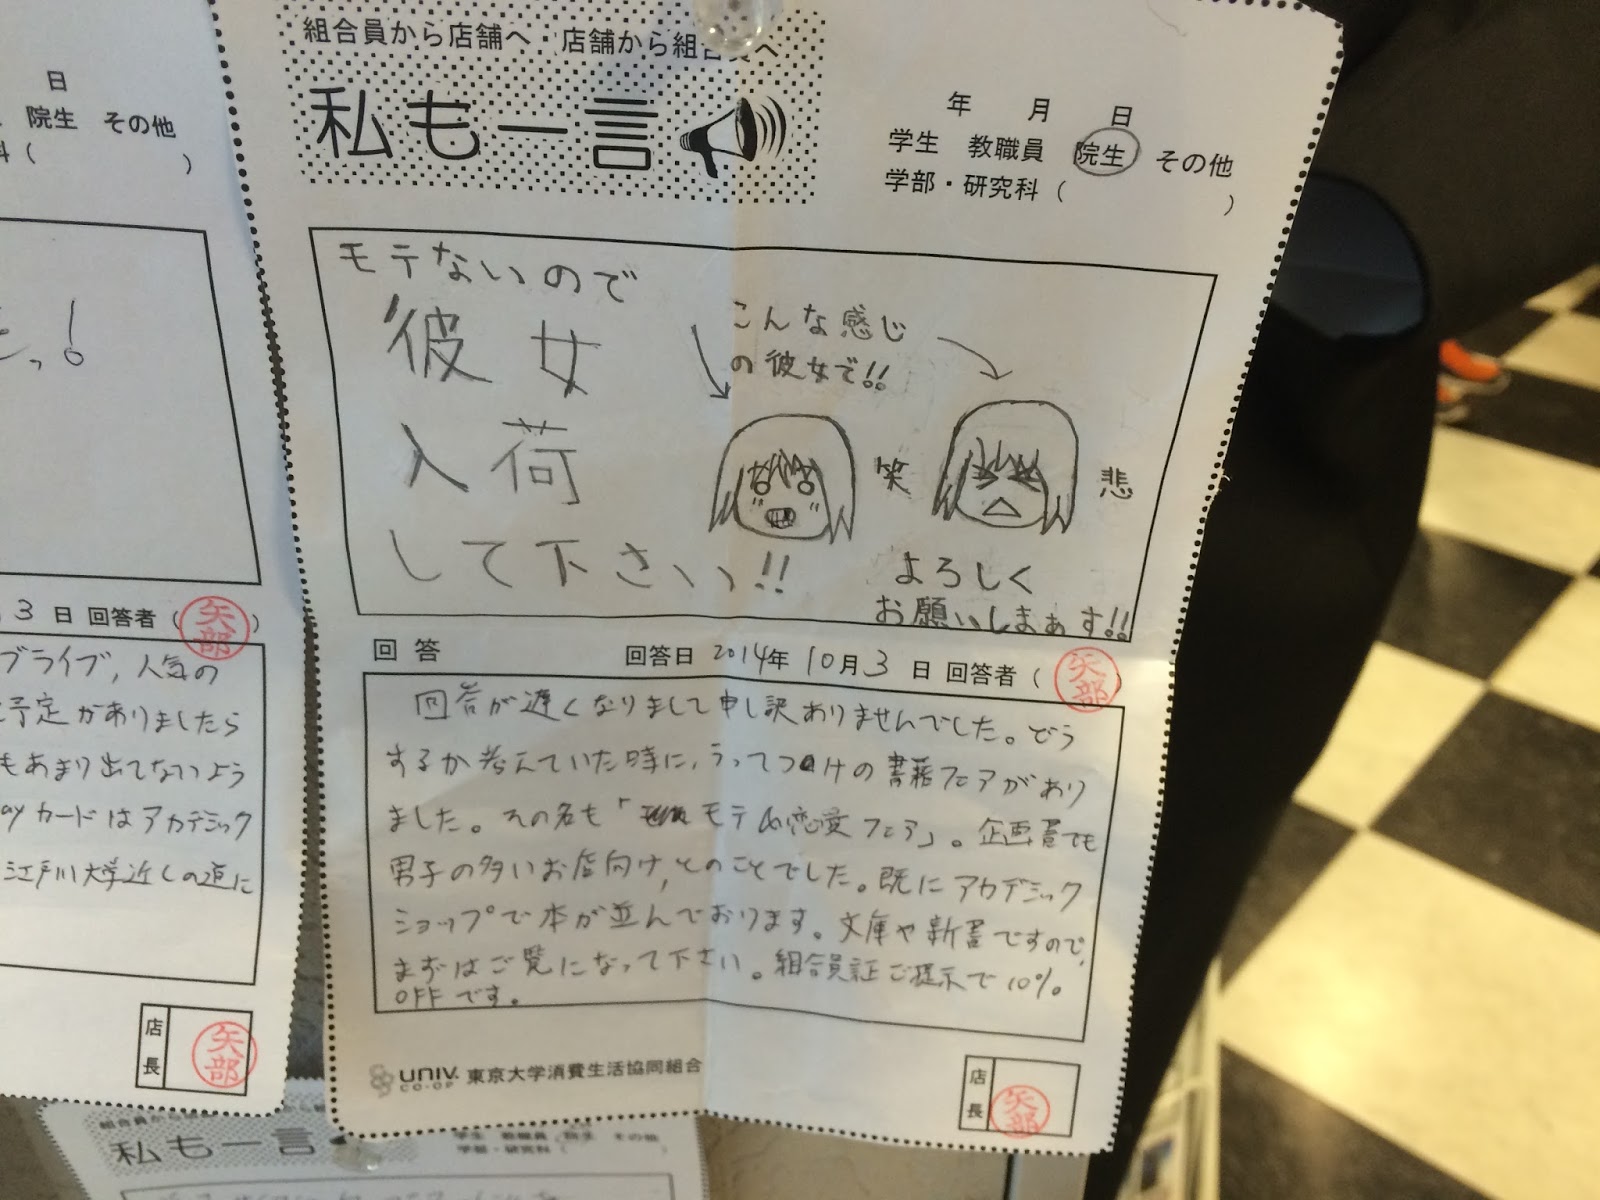 日
院生 その他
科(　　　)
っ!
3 日 回答者(矢部)
ブライブ, 人気の
予定がありましたら
もあまり出てないよう
ayカードはアカデミック
江戸川大学近くの道に
店長 矢部
組合員から店舗へ 店舗から組合員へ
私も一言
年 月 日
学生 教職員 院生 その他
学部・研究科(　　　)
モテないので
彼女
入荷
して下さい!!
こんな感じ
の彼女で!!
笑
悲
よろしく
お願いしまぁす!!
回答 回答日 2014年 10月 3日 回答者(矢部)
回答が遅くなりまして申し訳ありませんでした。どう
するか考えていた時に, うってつけの書籍フェアがあり
ました。その名も「モテ&恋愛フェア」。企画書でも
男子の多いお店向け, とのことでした。既にアカデミック
ショップで本が並んでおります。文庫や新書ですので,
まずはご覧になって下さい。組合員証ご提示で10%
OFFです。
UNIV. CO-OP 東京大学消費生活協同組合
店長 矢部
組合員から店舗へ
私も一言
学生 教職員 院生 その他
学部・研究科(